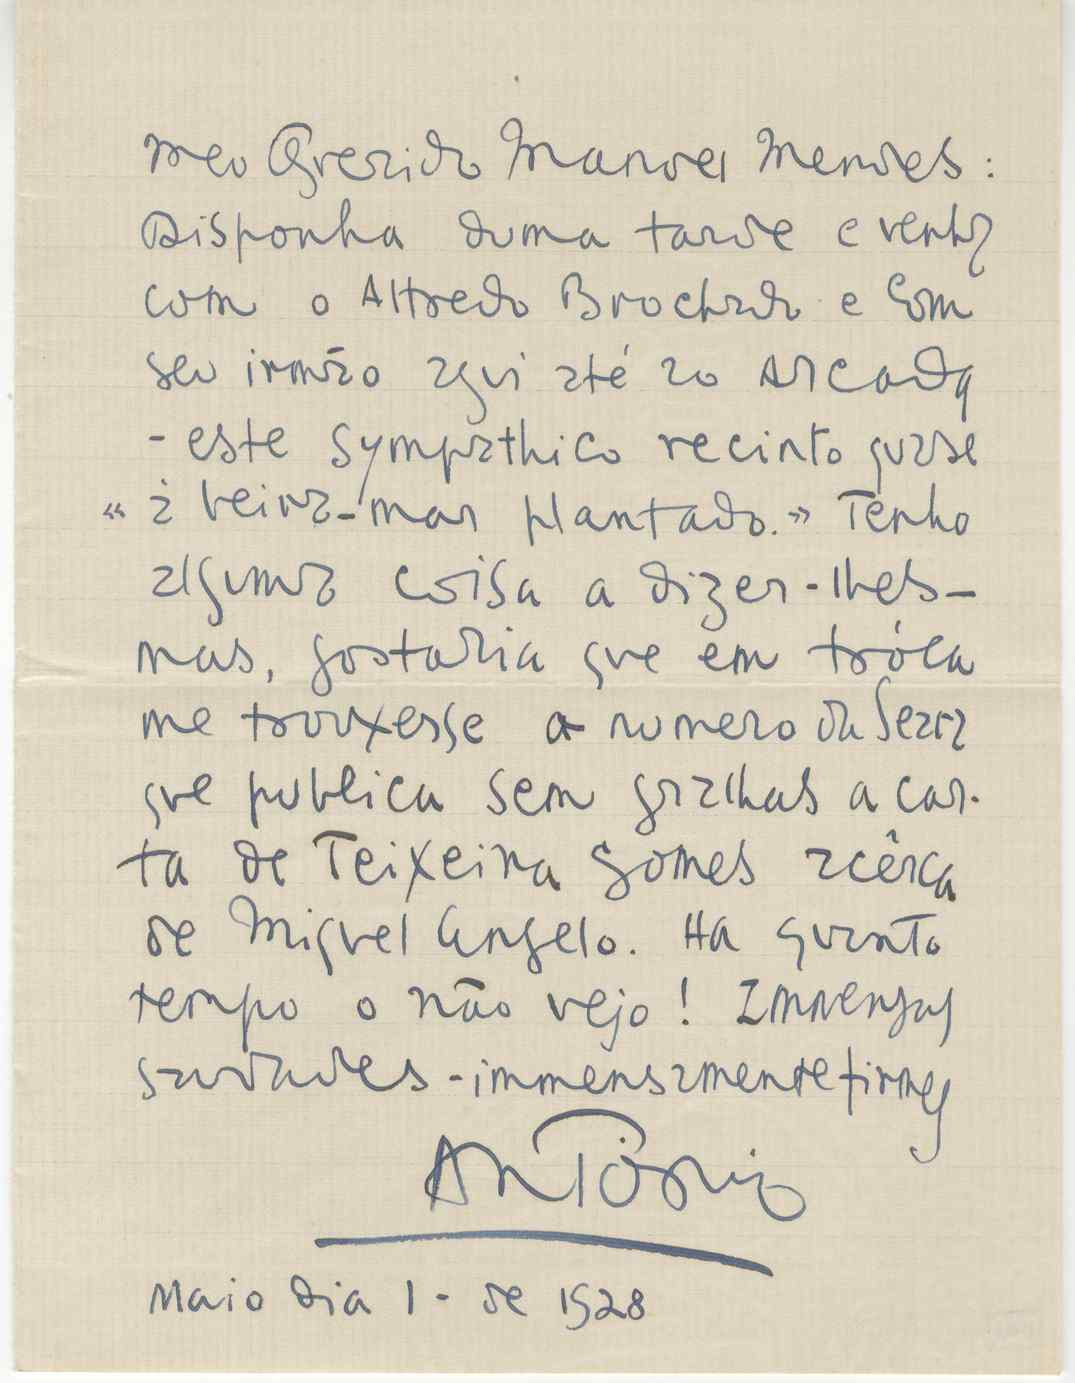 Meu Querido Manuel Mendes:
Disponha duma tarde e venha
com o Alfredo Brochado e com
seu irmão aqui até ao Arcada
- este sympathico recinto quase
« à beira-mar plantado.» Tenho
alguma coisa a dizer-lhes-
mas, gostaria que em tróca
me trouxesse o numero da Seara
que publica sem gralhas a car-
ta de Teixeira Gomes acêrca
de Miguel Angelo. Ha quanto
tempo o não vejo! Immensas
saudades - immensamente firmes
António
Maio dia 1 - de 1928